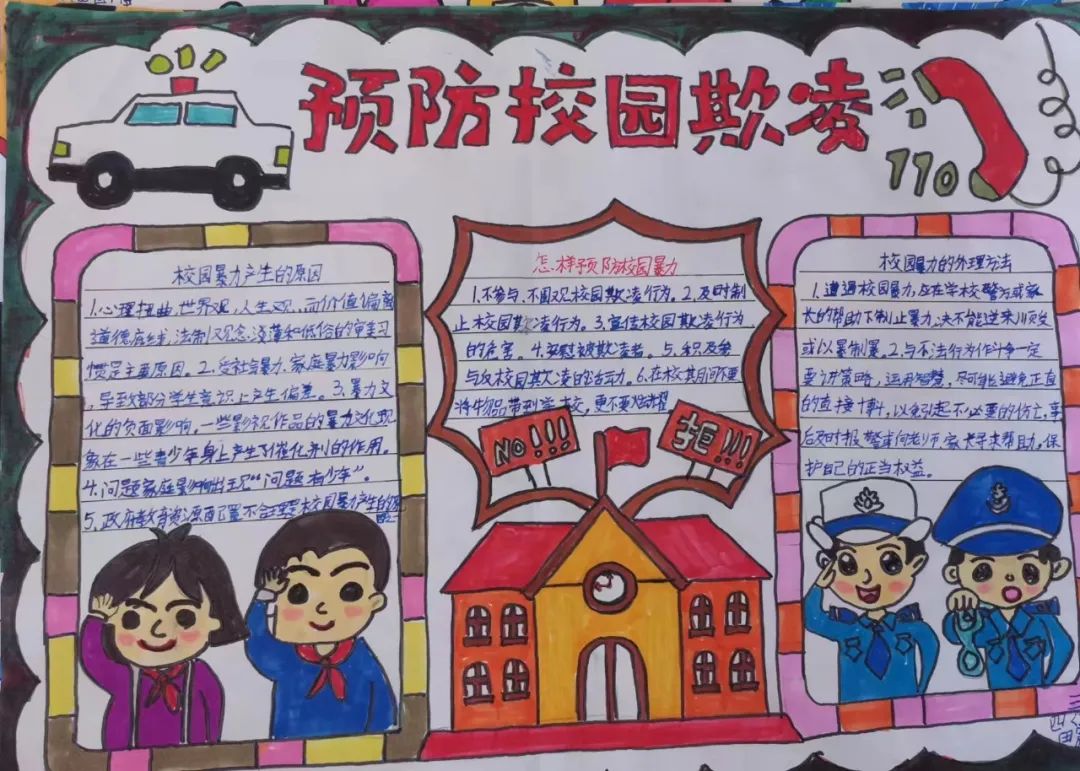 预防校园欺凌
110
校园暴力产生的原因
1.心理扭曲,世界观,人生观,而价值偏离
道德底线,法制观念淡薄和低俗的审美习
惯是主要原因。2.受社会暴力、家庭暴力影响
,导致部分学生意识上产生偏差。3.暴力文
化的负面影响。一些影视作品的暴力文化现
象在一些青少年身上产生了催化剂的作用。
4.问题家庭影响出现“问题青少年”。
5.政府教育资源配置不合理是校园暴力产生的
怎样预防校园暴力
1.不参与、不围观校园欺凌行为。2.及时制
止校园欺凌行为。3.宣传校园欺凌行为
的危害。4.安慰被欺凌者。5.积极参
与反校园欺凌的活动。6.在校其间不要
将物品带到学校,更不要炫耀
NO!!!
拒!!!
校园暴力的处理方法
1.遭遇校园暴力,应在学校、警方或家
长的帮助下制止暴力,决不能逆来顺受
或以暴制暴。2.与不法行为作斗争一定
要讲策略,运用智慧,尽可能避免正直
的直接十事,以免引起不必要的伤亡,事
后及时报警或向老师、家长寻求帮助,保
护自己的正当权益。